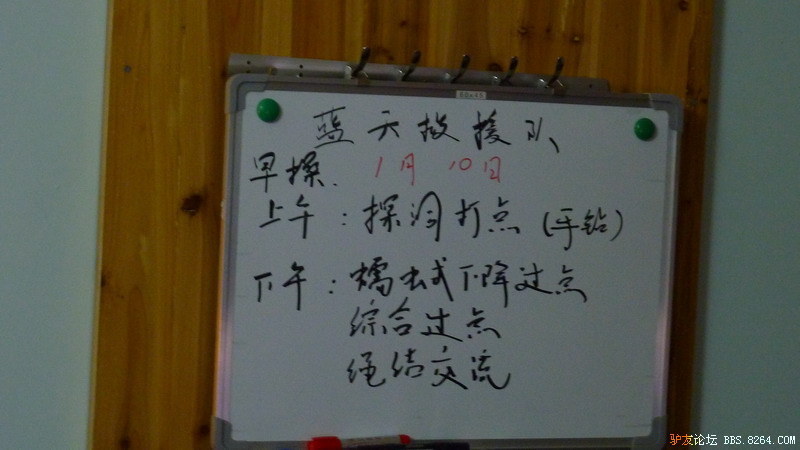 蓝天救援队
早操. 1月10日
上午：探洞打点（手钻）
下午：蠕虫式下降过点
综合过点
绳结交流
驴友论坛 BBS.8264.COM